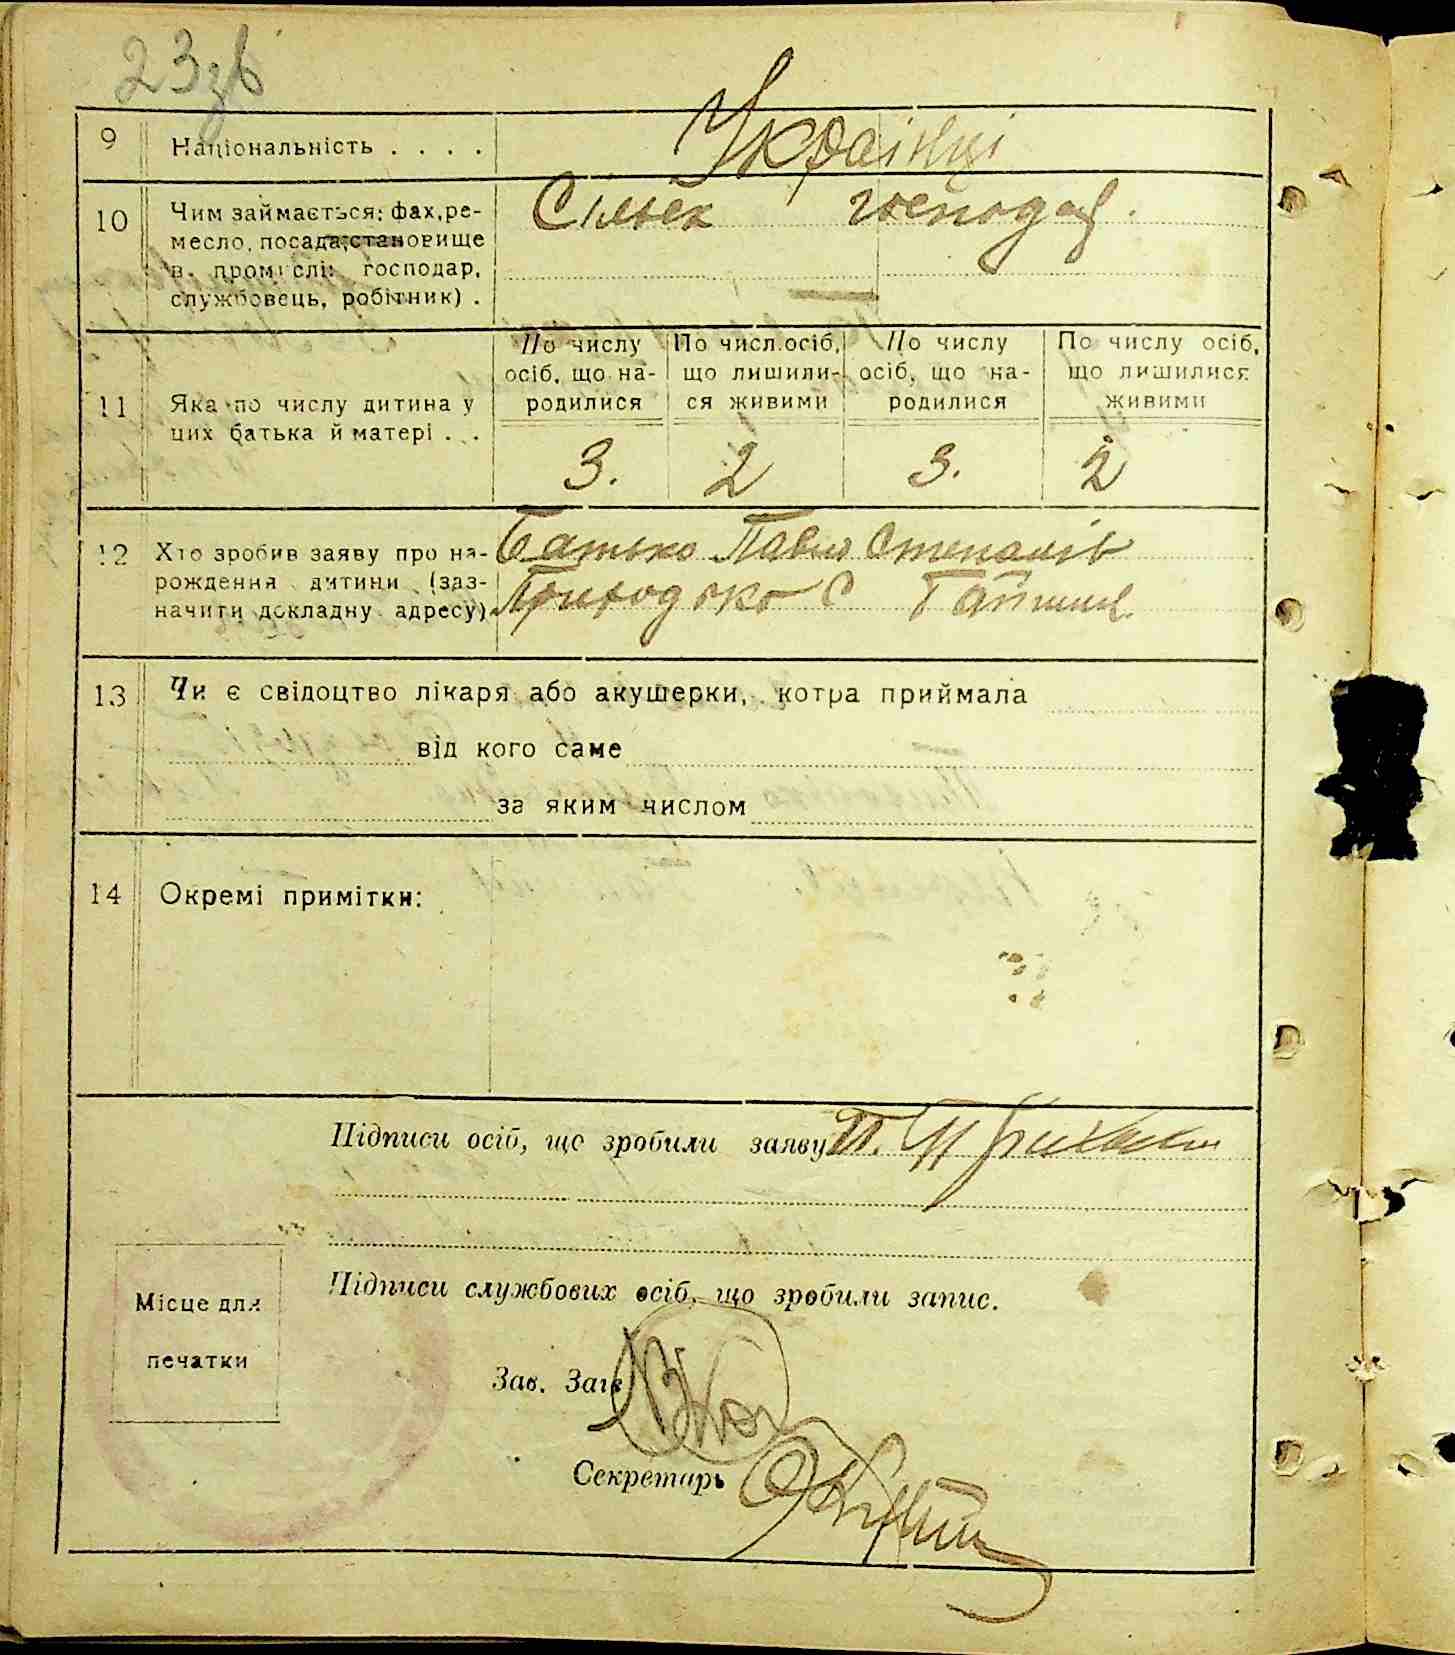 23зв
9 Національність . . . . Українці
10 Чим займається: фах, ре-
месло, посада, становище
в промислі: господар,
службовець, робітник) .
Сільск господар.
11 Яка по числу дитина у
цих батька й матері . . .
По числу осіб, що на-родилися
По числ. осіб, що лишили-ся живими
По числу осіб, що на-родилися
По числу осіб, що лишилися живими
3. 2 3. 2
12 Хто зробив заяву про на-
рождення дитини (заз-
начити докладну адресу)
Батько Павло Степанів
Приходько С
13 Чи є свідоцтво лікаря або акушерки, котра приймала
від кого саме
за яким числом
14 Окремі примітки:
Підписи осіб, що зробили заяву П.
Підписи службових осіб, що зробили запис.
Місце для
печатки
Зав. Загс
Секретарь